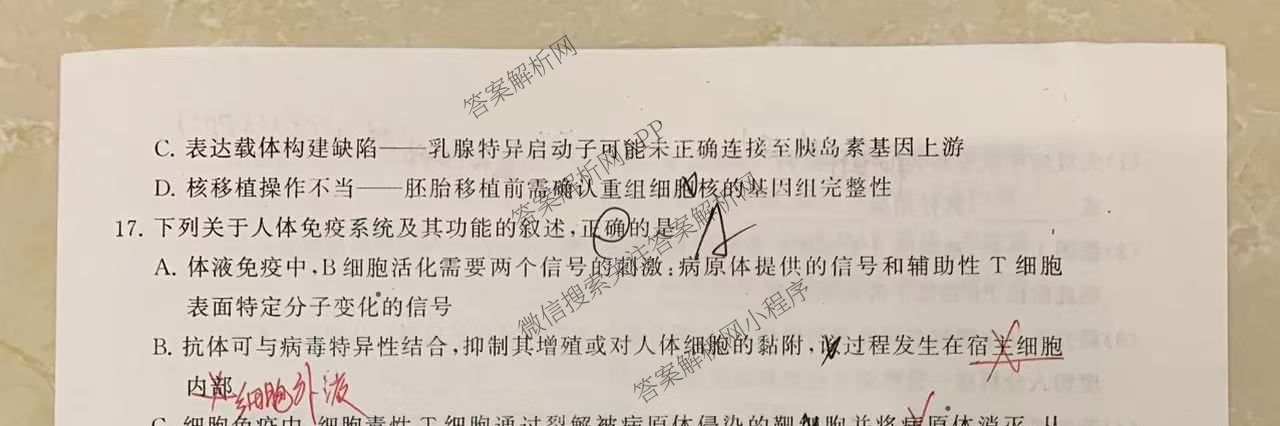 C. 表达载体构建缺陷——乳腺特异启动子可能未正确连接至胰岛素基因上游
D. 核移植操作不当——胚胎移植前需确认重组细胞核的基因组完整性
17. 下列关于人体免疫系统及其功能的叙述,正确的是 A
A. 体液免疫中,B细胞活化需要两个信号的刺激:病原体提供的信号和辅助性T细胞
表面特定分子变化的信号
B. 抗体可与病毒特异性结合,抑制其增殖或对人体细胞的黏附,该过程发生在宿主细胞
内部
细胞外液
C. 细胞免疫中,细胞毒性T细胞通过裂解被病原体侵染的靶细胞并将病原体消灭,从
答案解析网
答案解析网APP
答案解析网
微信搜索关注答案解析网
答案解析网小程序